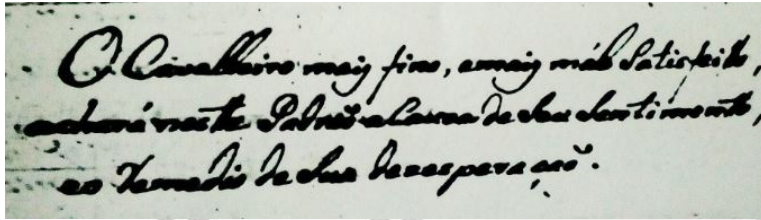 O Cavalleiro maiz fino, e maiz mál Satisfeito,
achará neste Padraõ a Cauza de Seu Sentimento,
e o Remedio de Sua dezesperaçaõ.